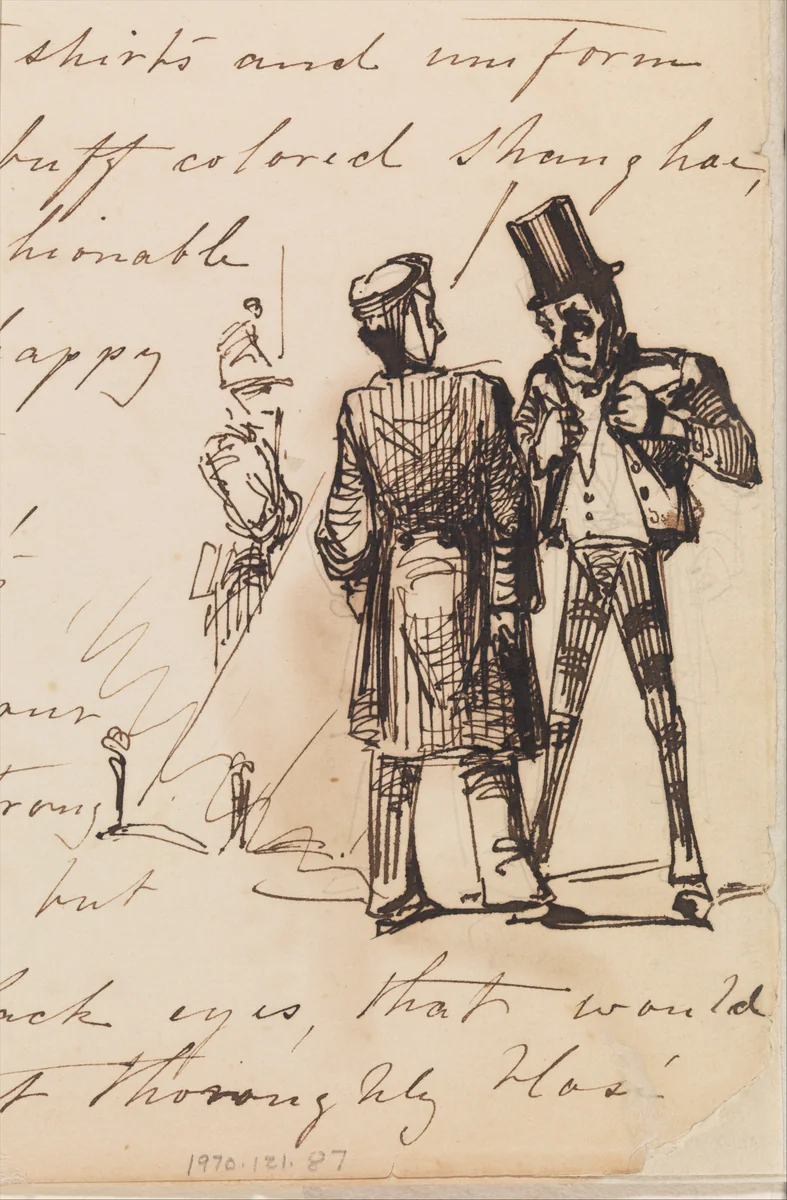 shirts and uniform
buff colored shanghae,
hionable
happy
our
rong
but
ack eyes, that would
t thoroughly blas'
1970.121.87